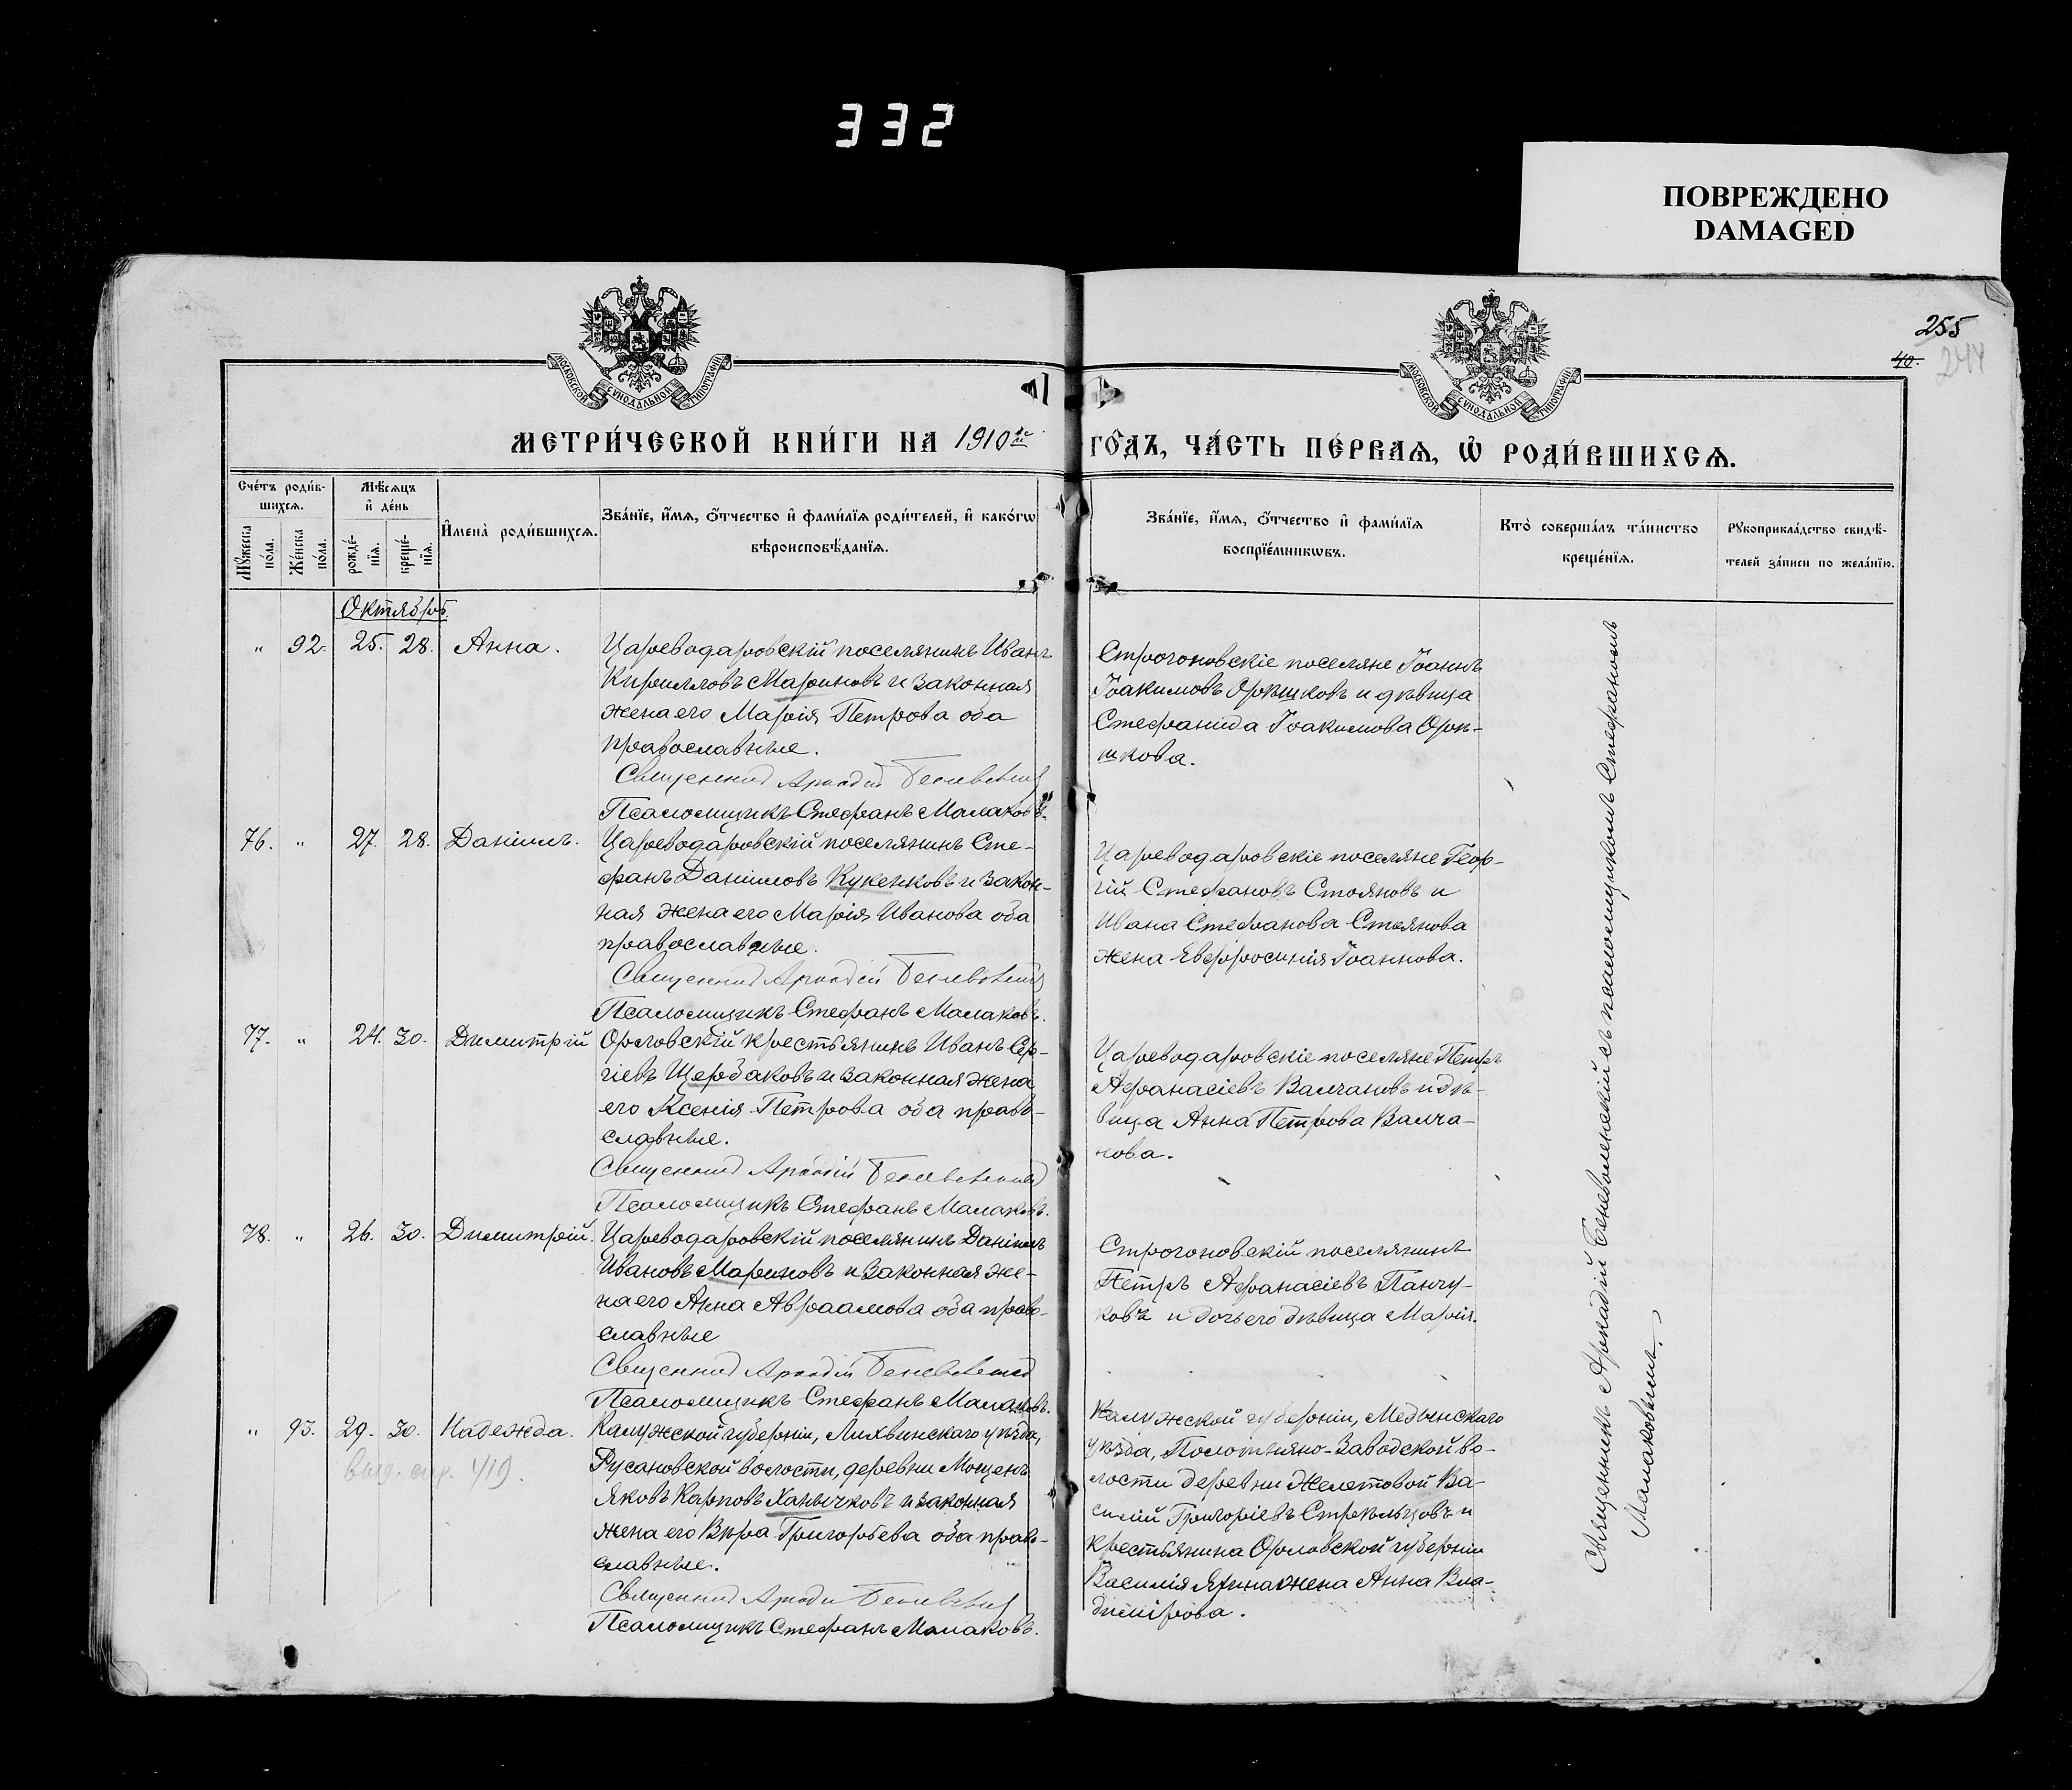 332
ПОВРЕЖДЕНО
DAMAGED
255
40.
244
МОСКОВСКОЙ СѴНОДАЛЬНОЙ ТИПОГРАФІИ
МОСКОВСКОЙ СѴНОДАЛЬНОЙ ТИПОГРАФІИ
МЕТРИ́ЧЕСКОЙ КНИ́ГИ НА 1910й
ГО́ДЪ, ЧА́СТЬ ПЕ́РВАѦ, Ѡ҆ РОДИ́ВШИХСѦ.
Сче́тъ роди́в-
шихсѧ.
Мꙋ́жеска по́ла.
Же́нска по́ла.
Мѣ́сѧцъ
и҆ де́нь
рожде́-
нїѧ.
креще́-
нїѧ.
И҆мена̀ роди́вшихсѧ.
Зва́нїе, и҆́мѧ, ѻ҆́тчество и҆ фами́лїѧ роди́телей, и҆ како́гѡ
вѣроисповѣ́данїѧ.
Зва́нїе, и҆́мѧ, ѻ҆́тчество и҆ фами́лїѧ
воспрїе́мникѡвъ.
Кто̀ соверша́лъ та́инство
креще́нїѧ.
Рꙋкоприкла́дство свидѣ́-
телей за́писи по жела́нїю.
Октябрь.
" 92. 25. 28. Анна.
Цареводаровскій поселянинъ Иванъ
Кирилловъ Мариновъ и законная
жена его Марія Петрова оба
православные.
Священникъ Аркадій Беневоленскій
Псаломщикъ Стефанъ Малаковъ.
Строгоновскіе поселяне Іоаннъ
Іоакимовъ Орѣшковъ и дѣвица
Стефанида Іоакимова Орѣ-
шкова.
76. " 27. 28. Даніилъ.
Цареводаровскій поселянинъ Сте-
фанъ Даніиловъ Кукенковъ и закон-
ная жена его Марія Иванова оба
православные.
Священникъ Аркадій Беневоленскій
Псаломщикъ Стефанъ Малаковъ.
Цареводаровскіе поселяне Геор-
гій Стефановъ Стояновъ и
Ивана Стефанова Стоянова
жена Евфросинія Іоаннова.
77. " 24. 30. Димитрій
Орловскій крестьянинъ Иванъ Сер-
гіевъ Щербаковъ и законная жена
его Ксенія Петрова оба право-
славные.
Священникъ Аркадій Беневоленскій
Псаломщикъ Стефанъ Малаковъ.
Цареводаровскіе поселяне Петръ
Афанасіевъ Валчановъ и дѣ-
вица Анна Петрова Валча-
нова.
78. " 26. 30. Димитрій.
Цареводаровскій поселянинъ Даніилъ
Ивановъ Мариновъ и законная же-
на его Анна Авраамова оба право-
славные
Священникъ Аркадій Беневоленскій
Псаломщикъ Стефанъ Малаковъ.
Строгоновскій поселянинъ
Петръ Афанасіевъ Панчу-
ковъ и дочь его дѣвица Марія.
" 93. 29. 30. Надежда.
выд. 419.
Калужской губерніи, Лихвинскаго уѣзда,
Русановской волости, деревни Мощенъ
Яковъ Карповъ Ханычковъ и законная
жена его Вѣра Григорьева оба право-
славные.
Священникъ Аркадій Беневоленскій
Псаломщикъ Стефанъ Малаковъ.
Калужской губерніи, Медынскаго
уѣзда, Полотняно-Заводской во-
лости деревни Желтовой Ва-
силій Григоріевъ Стрѣльцовъ и
крестьянина Орловской губерніи
Василія жена Анна Вла-
димірова.
Священникъ Аркадій Беневоленскій съ псаломщикомъ Стефаномъ
Малаковымъ.